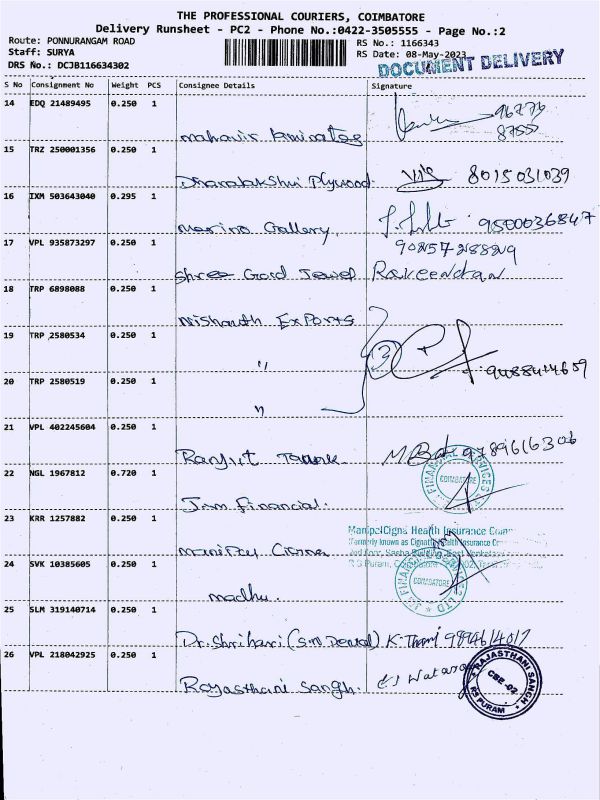 THE PROFESSIONAL COURIERS, COIMBATORE
Delivery Runsheet - PC2 - Phone No.:0422-3505555 - Page No.:2
Route: PONNURANGAM ROAD
Staff: SURYA
DRS No.: DCJB116634302
RS No.: 1166343
RS Date: 08-May-2023
DOCUMENT DELIVERY
S No Consignment No Weight PCS Consignee Details Signature
14 EDQ 21489495 0.250 1
96776
8755
15 TRZ 250001356 0.250 1
Dhanalakshmi Plywood 8015031039
16 IXM 503643040 0.295 1
Marino Gallery. 9500036847
17 VPL 935873297 0.250 1
9025728829
Shree Gold Jewel Raveendran
18 TRP 6898088 0.250 1
Nishanth Exports
19 TRP 2580534 0.250 1
"
3
9488414659
20 TRP 2580519 0.250 1
"
21 VPL 402245604 0.250 1
Ranjit 9789616306
22 NGL 1967812 0.720 1
COIMBATORE
JSM Financial.
23 KRR 1257882 0.250 1
ManipalCigna Health Insurance
Formerly known as Health Insurance
R S Puram,
24 SVK 10385605 0.250 1
COIMBATORE
madhu.
25 SLM 319140714 0.250 1
Dr. Shrihari (S.M Dental) K. Thami 9894614017
26 VPL 218042925 0.250 1
RAJASTHANI SANGH
CBE-02
RS PURAM
Rajasthani Sangh.